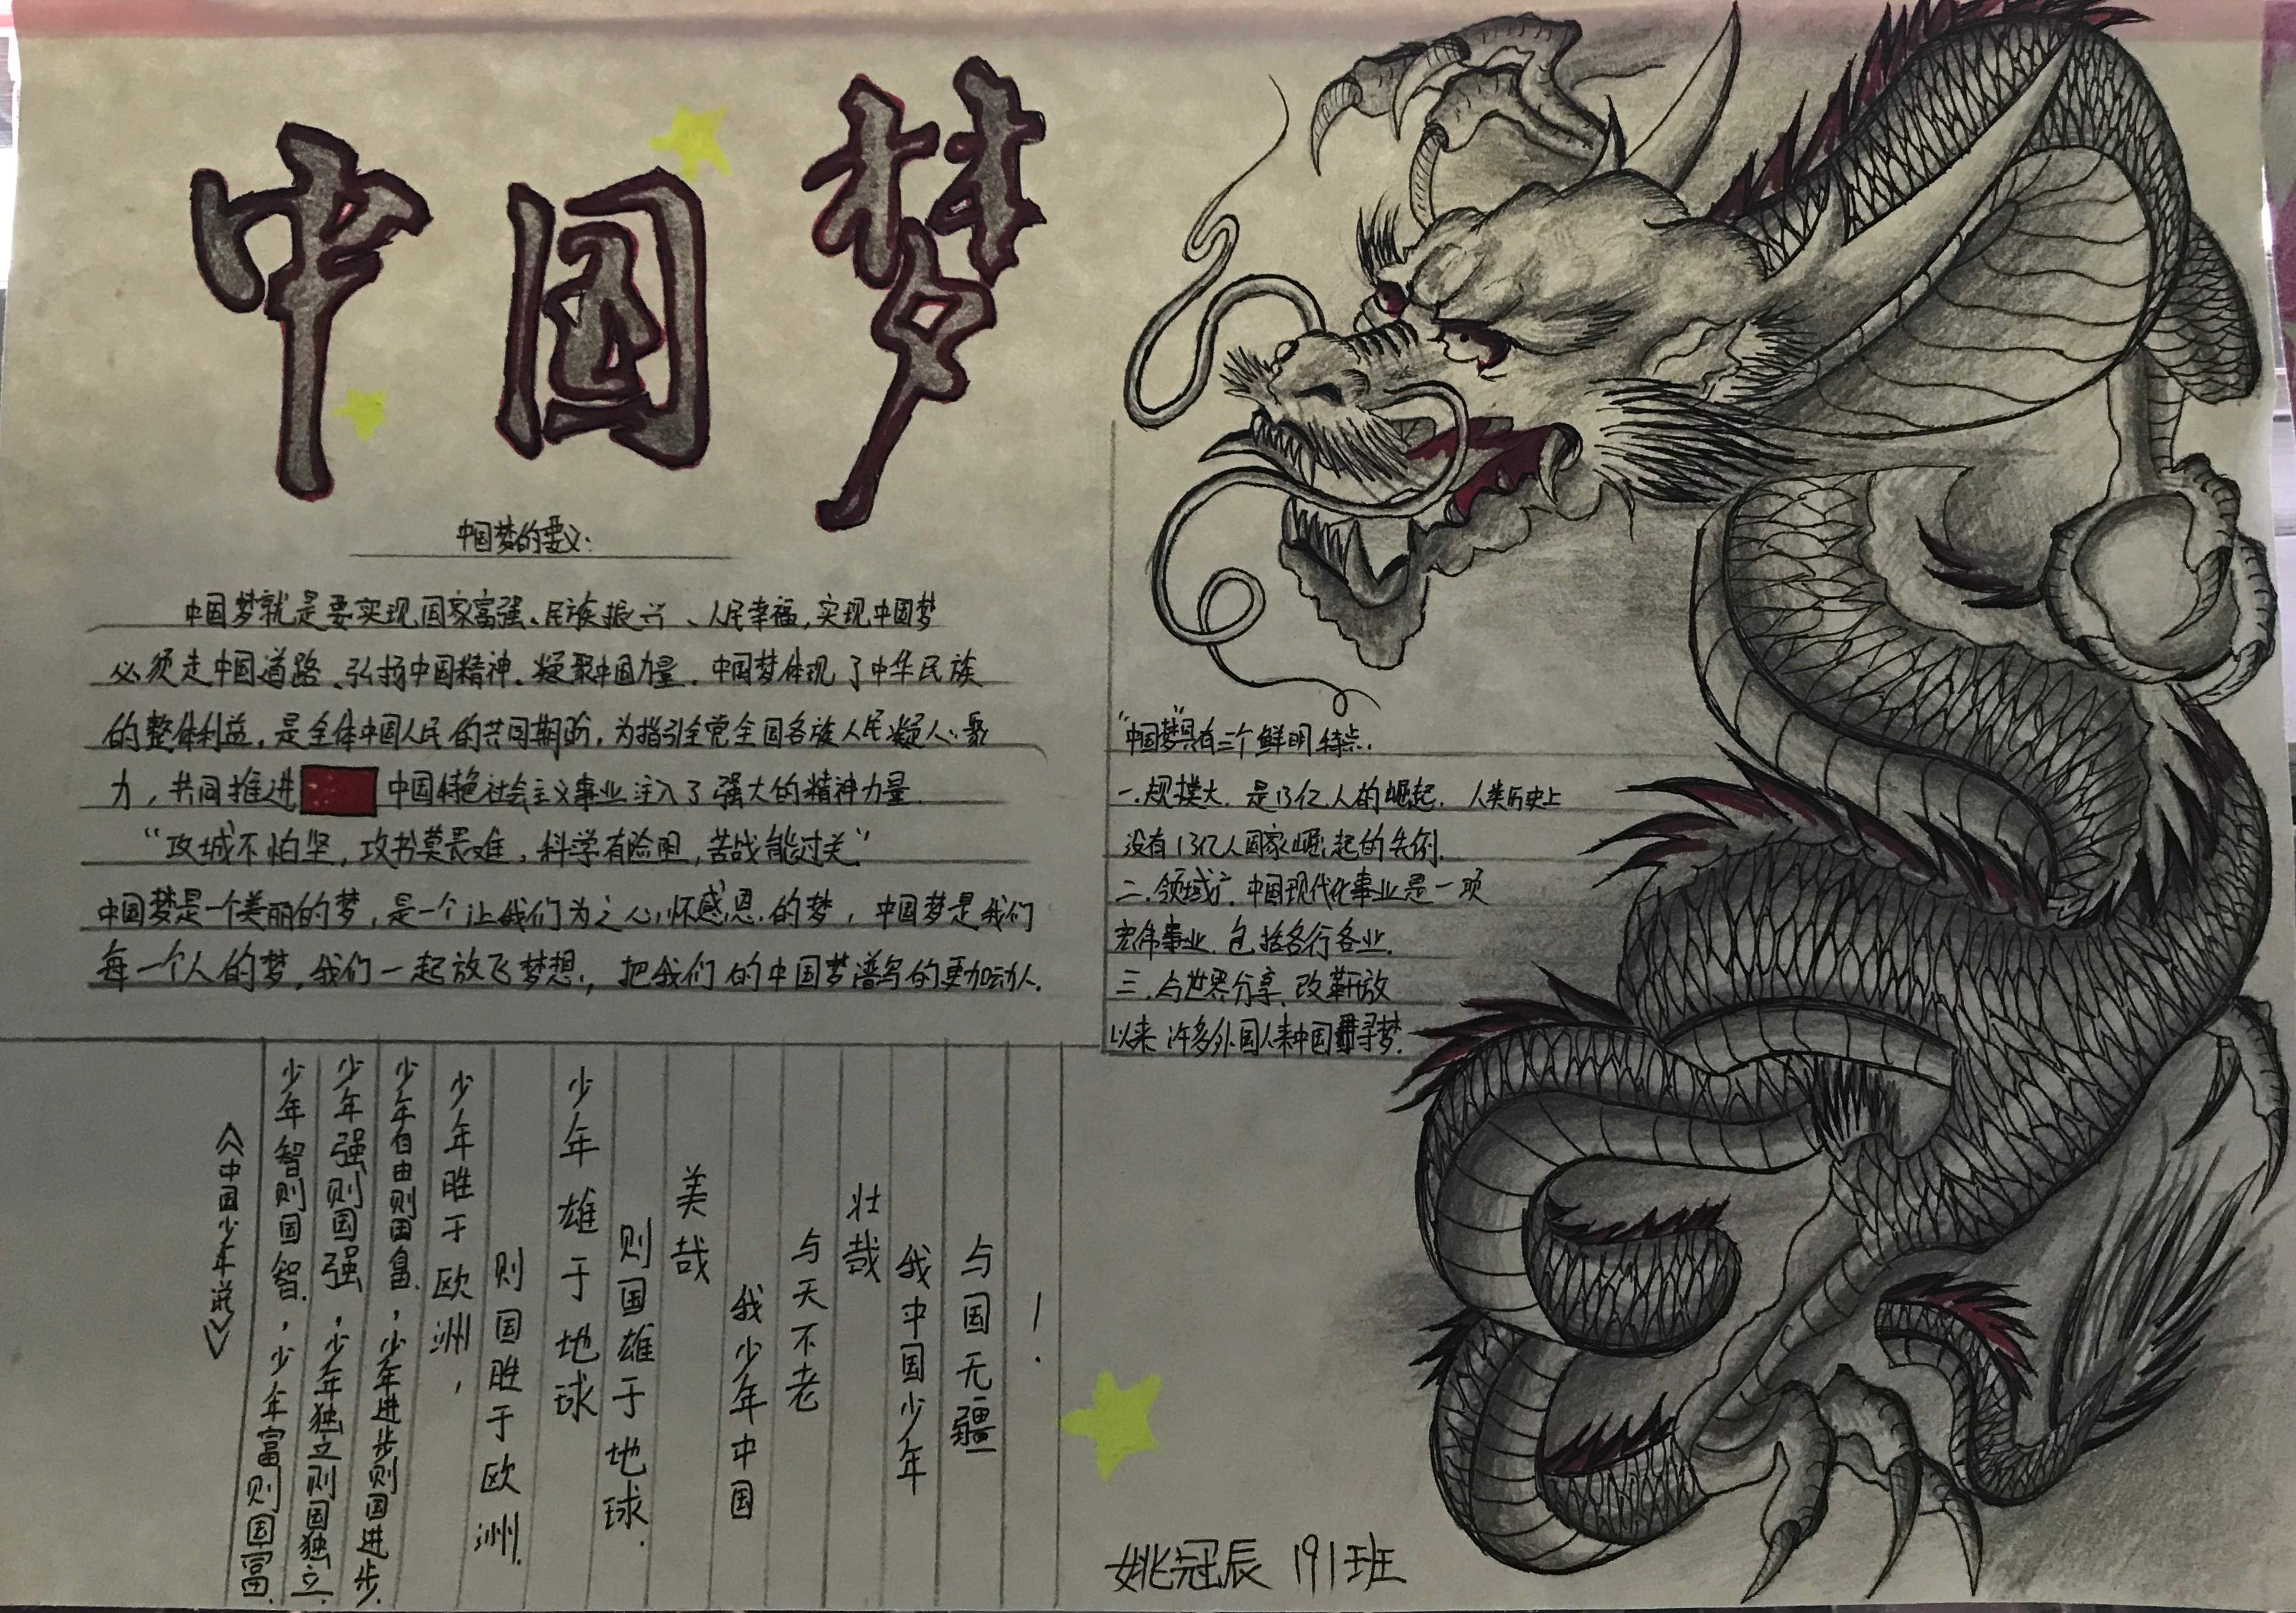 中国梦
中国梦的要义:
中国梦就是要实现国家富强、民族振兴、人民幸福,实现中国梦
必须走中国道路、弘扬中国精神、凝聚中国力量.中国梦体现了中华民族
的整体利益,是全体中国人民的共同期盼,为指引全党全国各族人民凝人心聚
力,共同推进中国特色社会主义事业注入了强大的精神力量.
“攻城不怕坚,攻书莫畏难,科学有险阻,苦战能过关”
中国梦是一个美丽的梦,是一个让我们为之心怀感恩的梦,中国梦是我们
每一个人的梦,我们一起放飞梦想,把我们的中国梦谱写的更加动人.
“中国梦”具有三个鲜明特点.
一.规模大.是13亿人的崛起.人类历史上
没有13亿人国家崛起的先例.
二.领域广.中国现代化事业是一项
宏伟事业.包括各行各业.
三.与世界分享.改革开放
以来许多外国人来中国寻梦.
《中国少年说》
少年智则国智,少年富则国富.
少年强则国强,少年独立则国独立.
少年自由则国自由,少年进步则国进步.
少年胜于欧洲,
则国胜于欧洲.
少年雄于地球
则国雄于地球.
美哉
我少年中国
与天不老
壮哉
我中国少年
与国无疆
!
姚冠辰 191班